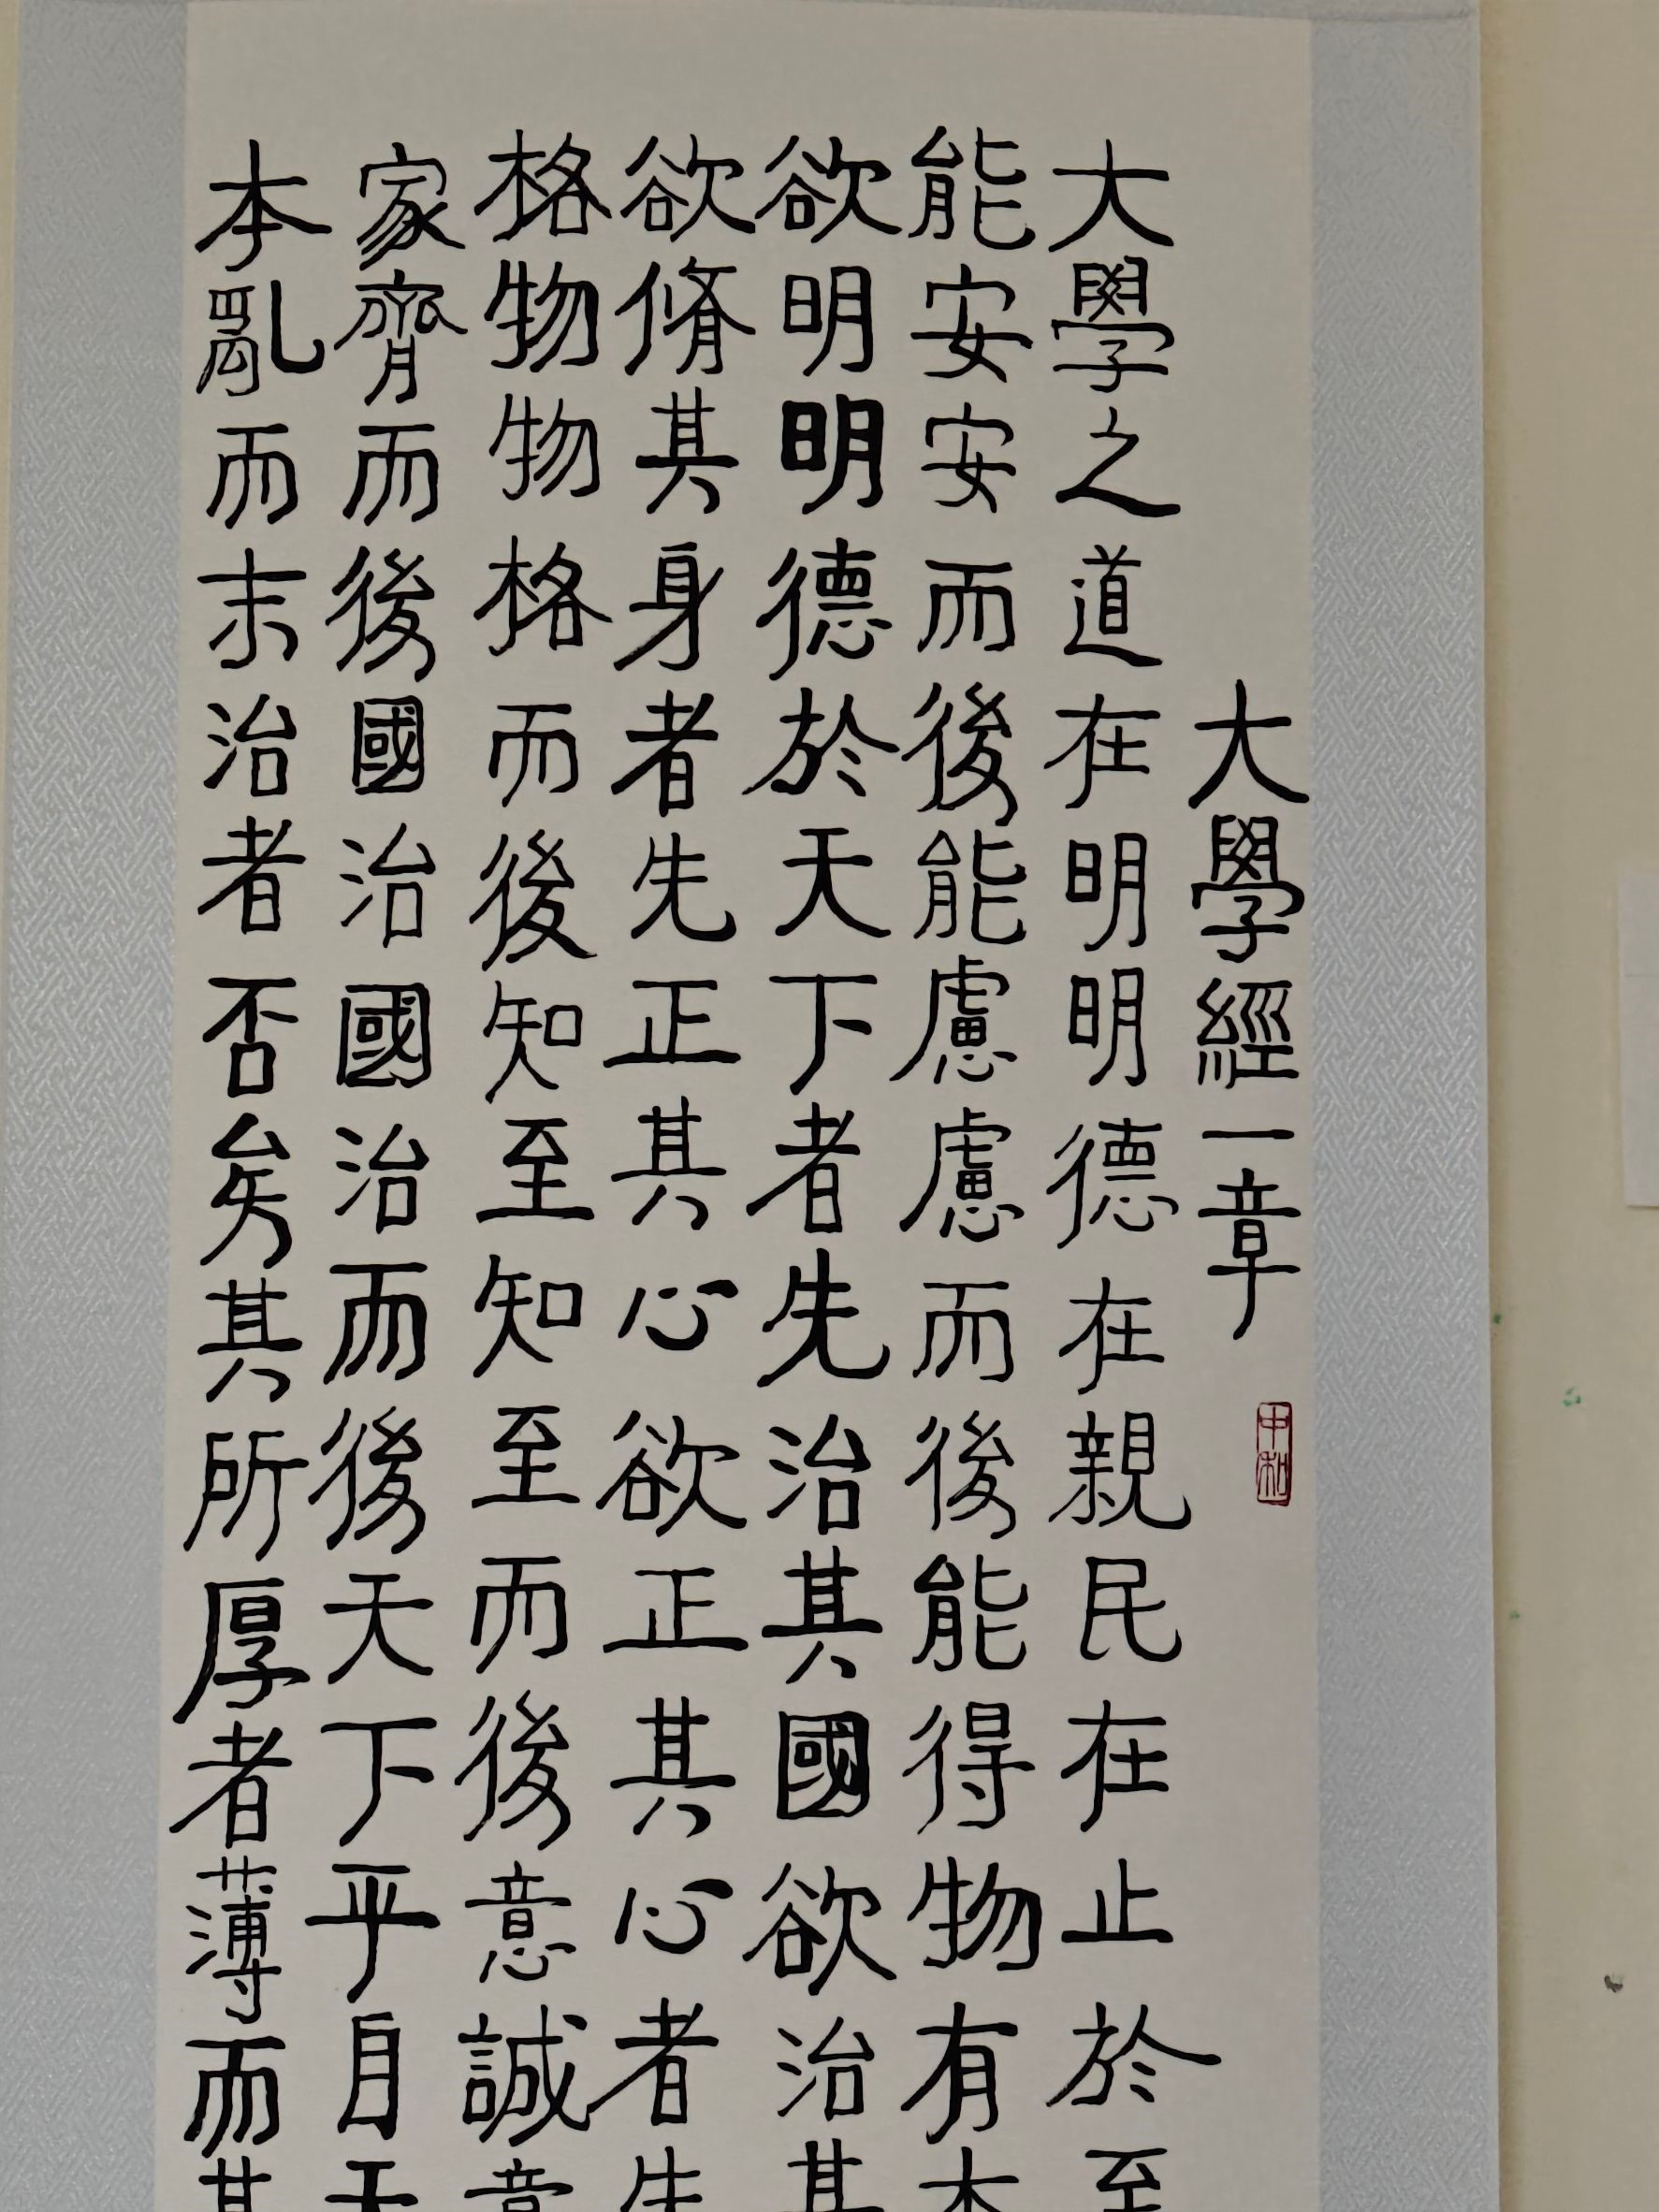 大學經一章
中和
大學之道在明明德在親民在止於至
能安安而後能慮慮而後能得物有本
欲明明德於天下者先治其國欲治其
欲脩其身者先正其心欲正其心者先
格物物格而後知至知至而後意誠意
家齊而後國治國治而後天下平自天
本亂而末治者否矣其所厚者薄而其